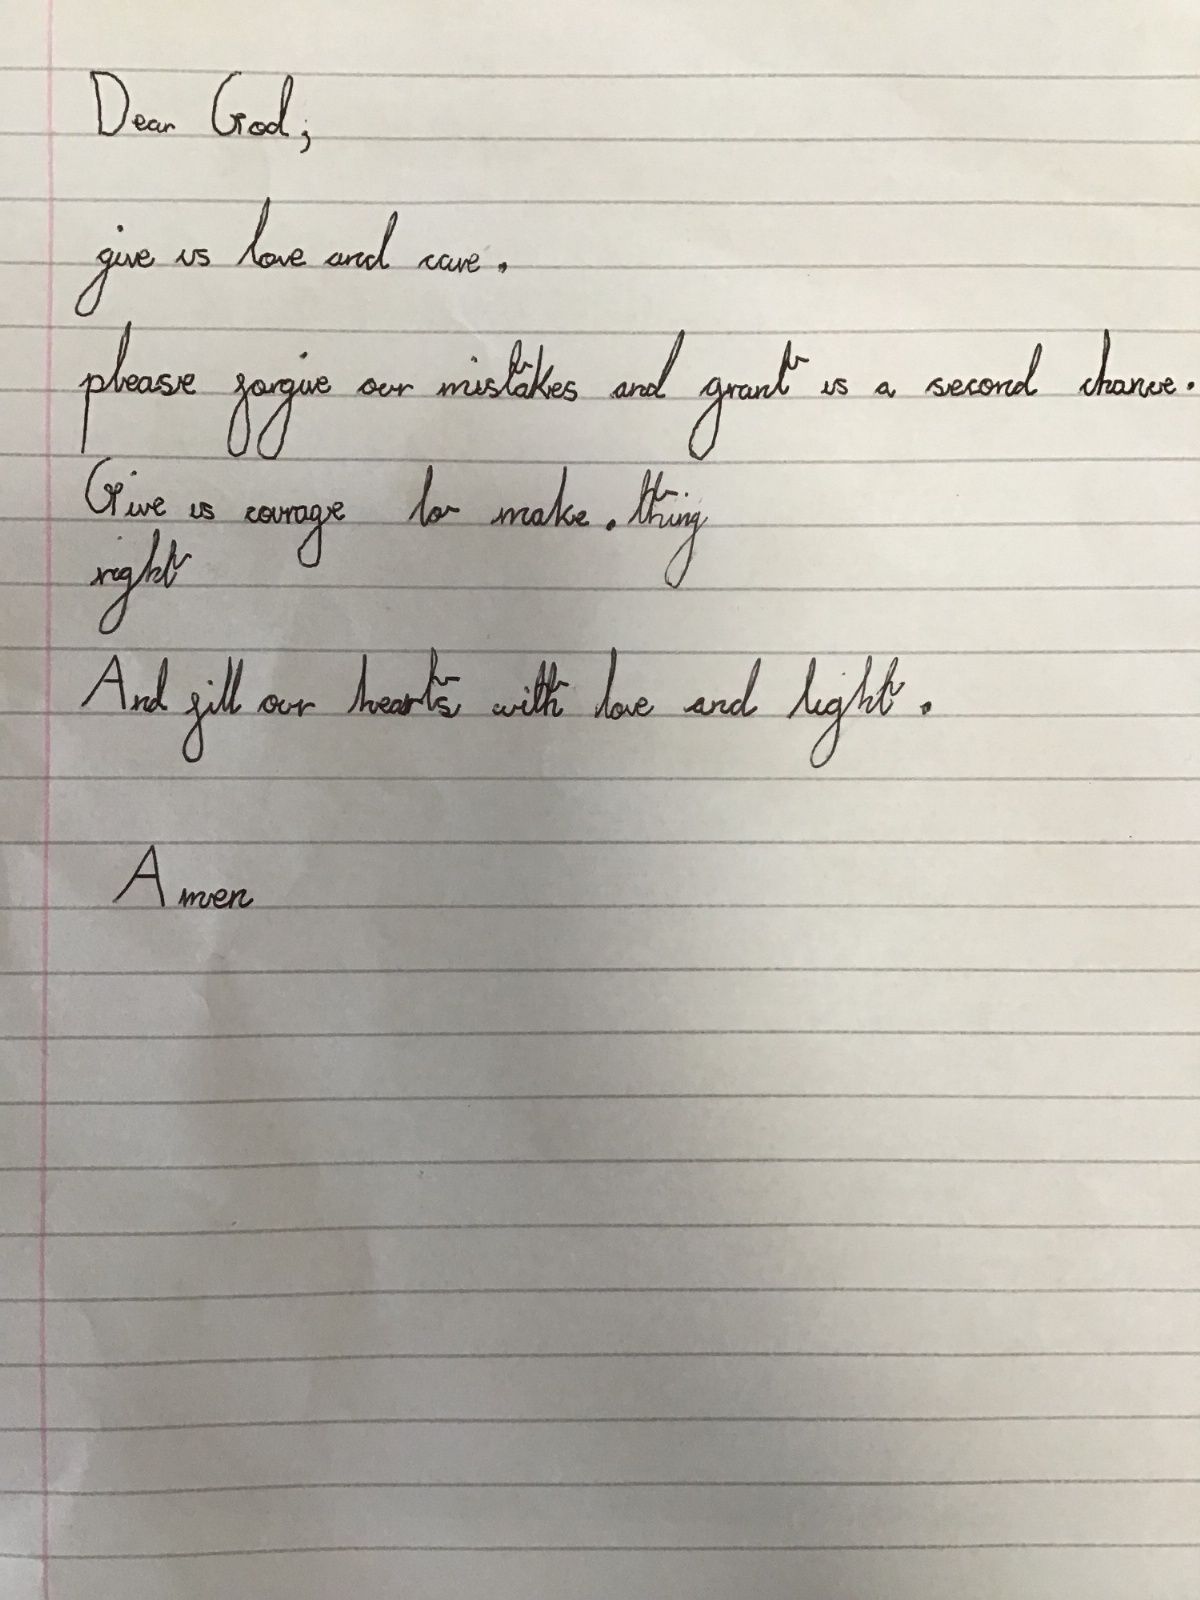 Dear God;
give us love and care.
please forgive our mistakes and grant us a second chance.
Give us courage to make. thing
right
And fill our hearts with love and light.
Amen